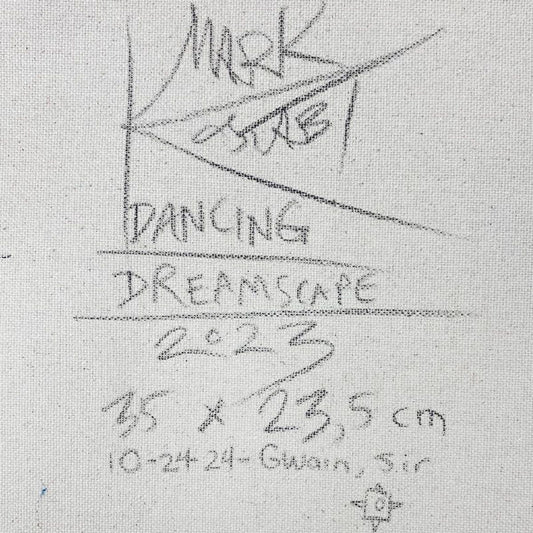 MARK
KOSTABI
DANCING
DREAMSCAPE
2023
35 x 23,5 cm
10-24-24-Gwain, Sir